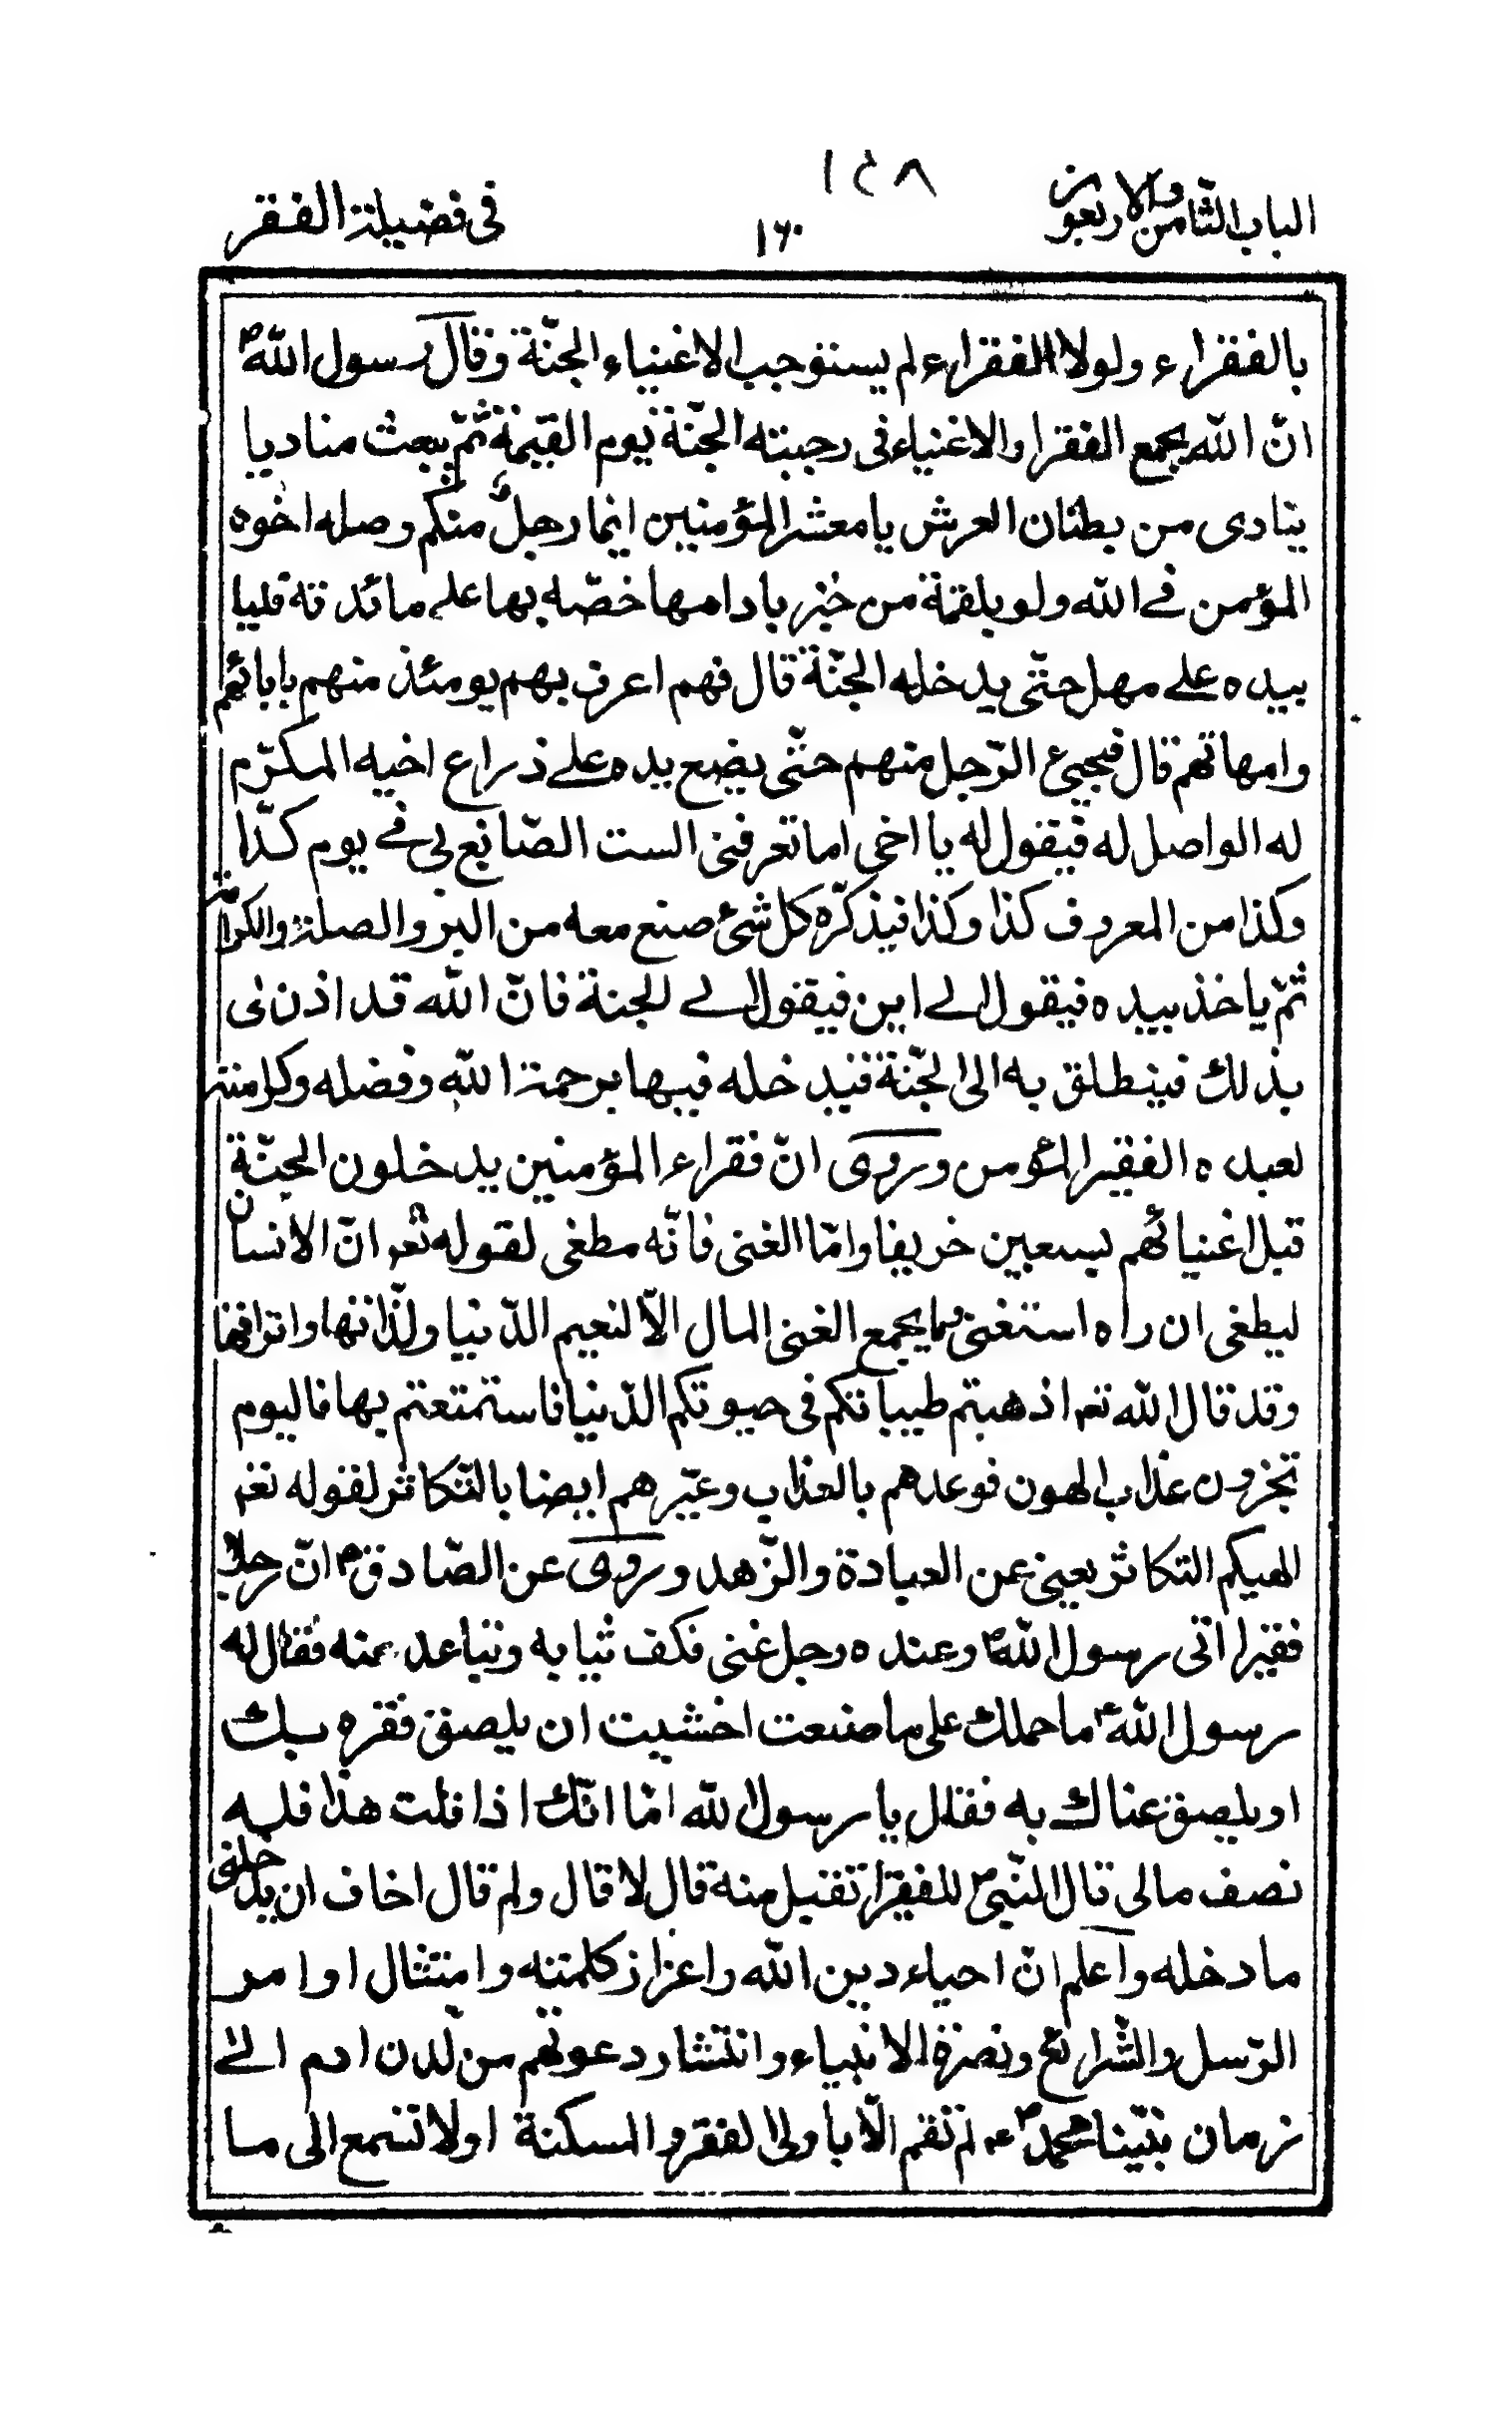 الباب الثامن والاربعون
١٤٨
١٦٠
فى فضيلة الفقر
بالفقراء ولولا الفقراء لم يستوجب الاغنياء الجنّة وقال رسول اللهص
انّ الله يجمع الفقرا والاغنياء فى رحبته الجنّة يوم القيمة ثمّ يبعث مناديا
ينادى من بطنان العرش يا معشر المؤمنين ايما رجل منكم وصله اخوه
المؤمن فى الله ولو بلقمة من خبز بادامها خصّه بها على مائدته فليا
بيده على مهل حتّى يدخله الجنّة قال فهم اعرف بهم يومئذ منهم بابائهم
وامهاتهم قال فيجيئ الرّجل منهم حتّى يضع يده على ذراع اخيه المكرّم
له الواصل له فيقول له يا اخى اما تعرفنى الست الصّانع بى فى يوم كذا
وكذا من المعروف كذا وكذا فيذكّره كل شئ صنع معه من البر والصلة والكرامة
ثمّ ياخذ بيده فيقول الى اين فيقول الى الجنة فانّ الله قد اذن لى
بذلك فينطلق به الى الجنّة فيدخله فيها برحمة الله وفضله وكرامته
لعبده الفقير المؤمن وروى انّ فقراء المؤمنين يدخلون الجنّة
قبل اغنيائهم بسبعين خريفا وامّا الغنى فانّه مطغى لقوله تعه انّ الانسان
ليطغى ان راه استغنى وما يجمع الغنى المال الّا لنعيم الدّنيا ولذّاتها واترافها
وقد قال الله تعه اذهبتم طيباتكم فى حيوتكم الدّنيا فاستمتعتم بها فاليوم
تجزون عذاب الهون فوعدهم بالعذاب وعيّرهم ايضا بالتّكاثر لقوله تعه
الهيكم التكاثر يعنى عن العبادة والزّهد وروى عن الصّادقع انّ رجلا
فقيرا اتى رسول اللهص وعنده رجل غنى فكف ثيابه وتباعد عنه فقال له
رسول اللهص ما حملك على ما صنعت اخشيت ان يلصق فقره بك
او يلصق غناك به فقال يا رسول الله امّا انّك اذا قلت هذا فله
نصف مالى قال النّبىص للفقير اتقبل منه قال لا قال ولم قال اخاف ان يدخلنى
ما دخله واعلم انّ احياء دين الله واعزاز كلمته وامتثال اوامر
الرّسل والشّرايع ونصرة الانبياء وانتشار دعوتهم من لدن ادم الى
زمان نبيّنا محمّدص لم تقم الّا باولى الفقر والمسكنة اولا تسمع الى ما